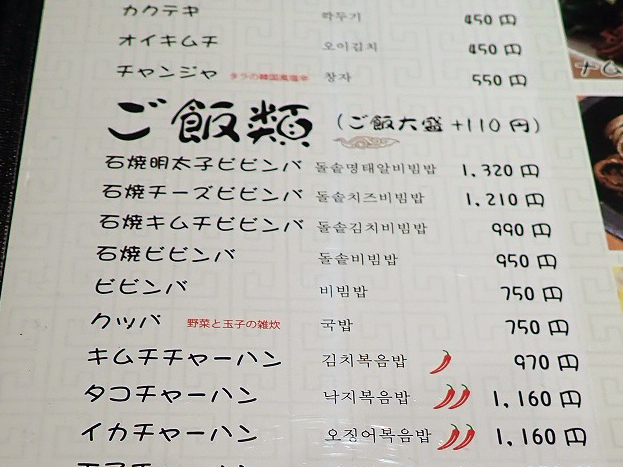 カクテキ 깍두기 450円
オイキムチ 오이김치 450円
チャンジャ タラの韓国風塩辛 창자 550円
ご飯類 (ご飯大盛+110円)
石焼明太子ビビンバ 돌솥명태알비빔밥 1,320円
石焼チーズビビンバ 돌솥치즈비빔밥 1,210円
石焼キムチビビンバ 돌솥김치비빔밥 990円
石焼ビビンバ 돌솥비빔밥 950円
ビビンバ 비빔밥 750円
クッパ 野菜と玉子の雑炊 국밥 750円
キムチチャーハン 김치볶음밥 970円
タコチャーハン 낙지볶음밥 1,160円
イカチャーハン 오징어볶음밥 1,160円